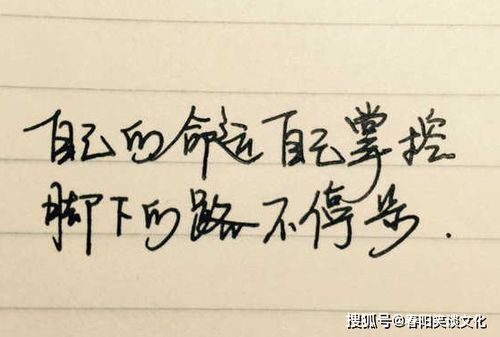 自己的命运自己掌控
脚下的路不停步.
搜狐号@春阳笑谈文化